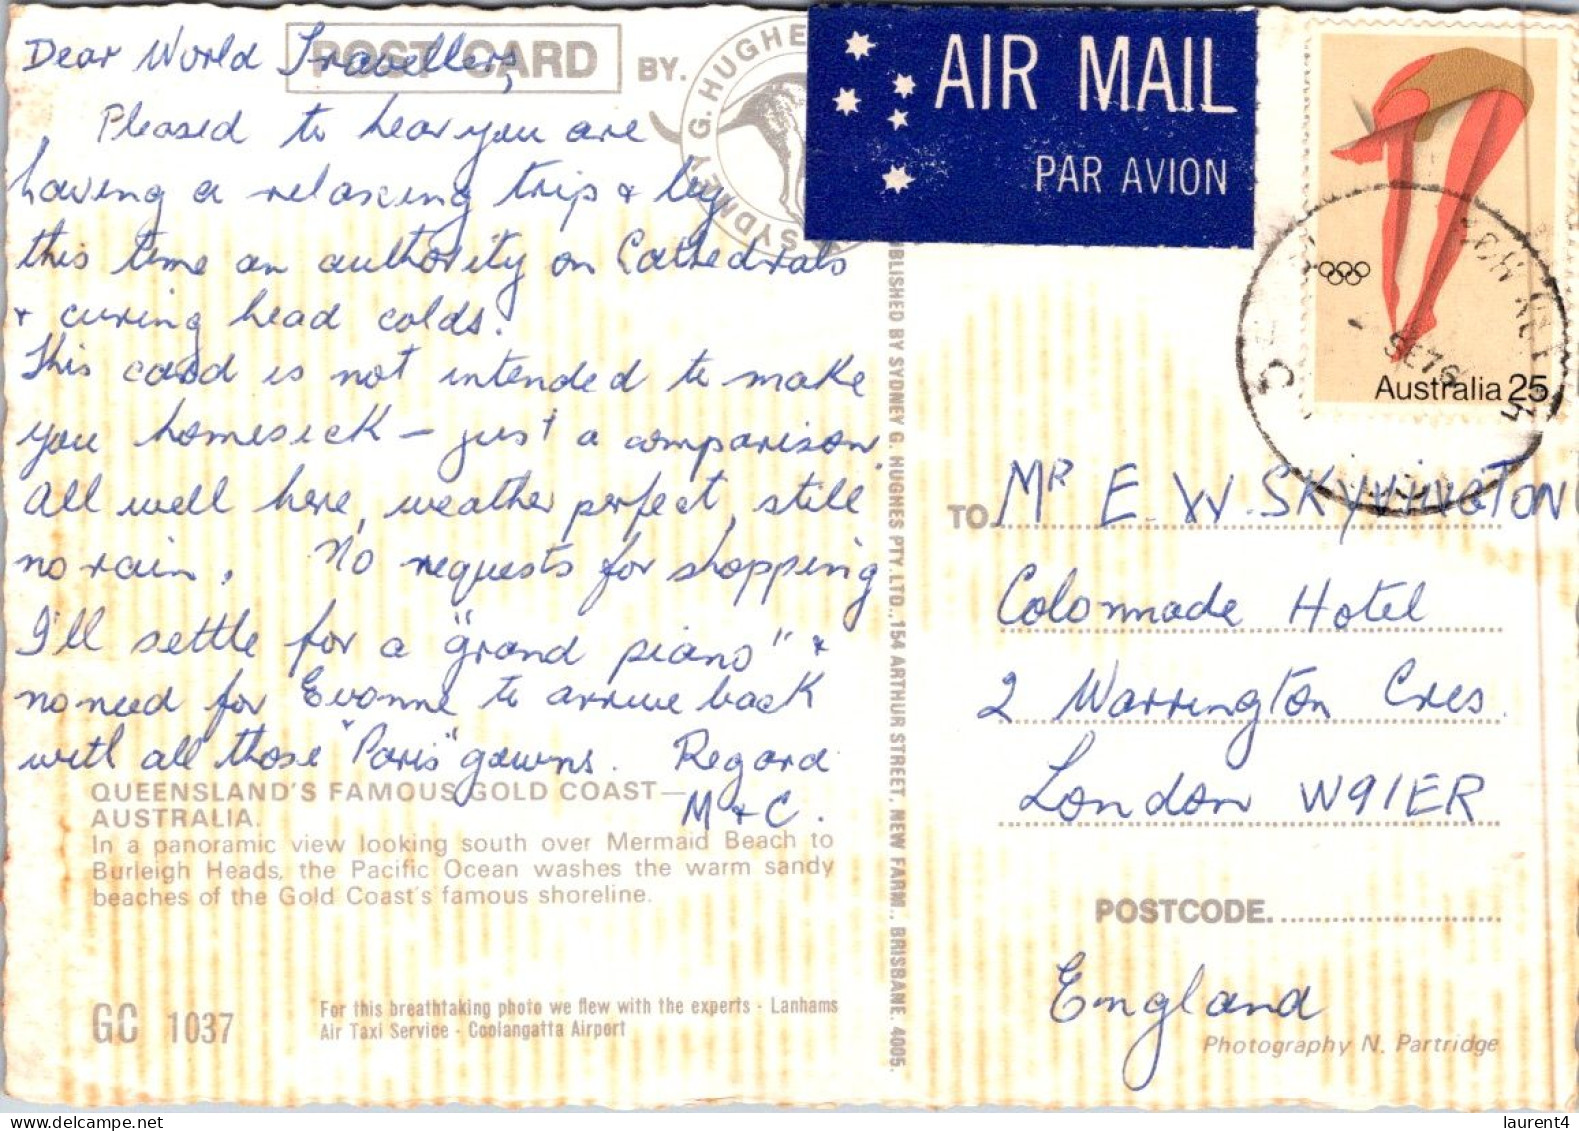 POST CARD
BY.
SYDNEY G. HUGHE
AIR MAIL
PAR AVION
Australia 25
SE76
Dear World Travellers,
Pleased to hear you are
having a relaxing trip & by
this time an authority on Cathedrals
& curing head colds.
This card is not intended to make
you homesick – just a comparison.
All well here, weather perfect, still
no rain. No requests for shopping
I'll settle for a "grand piano" &
no need for Evonne to arrive back
with all those "Paris" gowns. Regard
M & C.
QUEENSLAND'S FAMOUS GOLD COAST—
AUSTRALIA.
In a panoramic view looking south over Mermaid Beach to
Burleigh Heads, the Pacific Ocean washes the warm sandy
beaches of the Gold Coast's famous shoreline.
GC 1037
For this breathtaking photo we flew with the experts - Lanhams
Air Taxi Service - Coolangatta Airport
UBLISHED BY SYDNEY G. HUGHES PTY. LTD., 154 ARTHUR STREET, NEW FARM., BRISBANE. 4005.
TO. MR E. W. SKYVINGTON
Colonnade Hotel
2 Warrington Cres.
London W91ER
POSTCODE.
England
Photography N. Partridge
laurent4